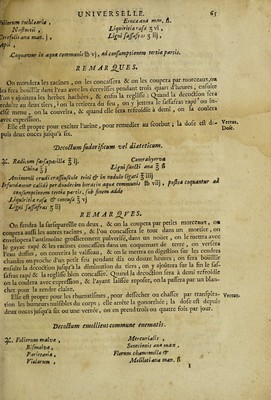 UNIVERSELLE. 65
Foliorum cochlearia, Eruca ana man. ß.
Nasturii, Liquiritia rasa ℥ vi,
Ligni sassafras ℥ iij,
Apii,
Coquantur in aqua communis ℔ v, ad consumptionem tertia partis.
REMARQUES.
On mondera les racines, on les concassera & on les coupera par morceaux, on
les fera bouillir dans l'eau avec les cressons pendant trois quarts d'heures, ensuite
l'on y ajoûtera les herbes hachées, & enfin la reglisse : Quand la decoction sera
reduite au deux tiers, l'on la retirera du feu, on y jettera le sassafras rapé ou in-
cisé menu, on la couvrira, & quand elle sera refroidie à demi, on la coulera
avec expression.
Elle est propre pour exciter l'urine, pour remedier au scorbut ; la dose est de-
puis deux onces jusqu'à six.
Vertus.
Dose.
Decoctum sudorificum vel diateticum.
℞. Radicum sarsaparilla ℥ ij. Contrahyerva
China ℥ j Ligni sancti ana ℥ ß
Antimonii crudi crassiuscule triti & in nodulo ligati ℥ iiij
Infundantur calidè per duodecim horas in aqua communis ℔ viij, postea coquantur ad
consumptionem tertia partis, sub finem adde
Liquiritia rasa & contusa ℥ vj
Ligni sassafras ℥ iij
REMARQUES.
On fendra la sarseparelle en deux, & on la coupera par petits morceaux, on
coupera aussi les autres racines, & l'on concassera le tout dans un mortier, on
envelopera l'antimoine grossierement pulverisé, dans un noüet, on le mettra avec
le gayac rapé & les racines concassées dans un coquemart de terre, on versera
l'eau dessus, on couvrira le vaisseau, & on le mettra en digestion sur les cendres
chaudes ou proche d'un petit feu pendant dix ou douze heures ; on fera bouillir
ensuite la decoction jusqu'à la diminution du tiers, on y ajoûtera sur la fin le sas-
safras rapé & la reglisse bien concassée. Quand la decoction sera à demi refroidie
on la coulera avec expression, & l'ayant laissée reposer, on la passera par un blan-
chet pour la rendre claire.
Elle est propre pour les rhumatismes, pour dessecher ou chasser par transpira-
tion les humeurs nuisibles du corps ; elle arrête la gonorrhée ; la dose est depuis
deux onces jusqu'à six ou une verrée, on en prend trois ou quatre fois par jour.
Vertus.
Decoctum emolliens commune enematis.
℞. Foliorum malva, Mercurialis,
Bismalva, Senecionis ana man.
Parietaria, Florum chamomilla &
Violarum, Meliloti ana man. ß
I